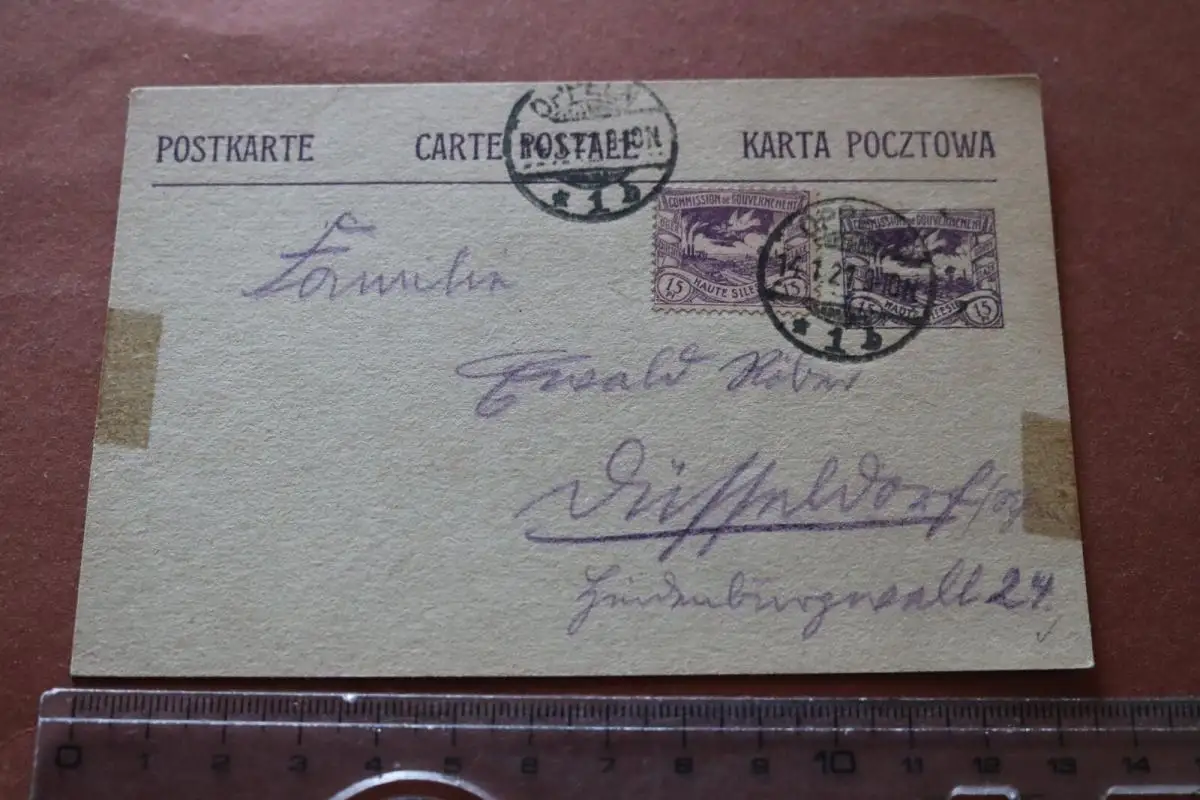 POSTKARTE CARTE POSTALE KARTA POCZTOWA
OPPELN
1 b
COMMISSION DE GOUVERNEMENT
15 HAUTE SILESIE 15
OPPELN
14.1.21.9-10N
* 1 b
COMMISSION DE GOUVERNEMENT
15 HAUTE SILESIE 15
Familie
Ewald Röber
Düsseldorf
Hindenburgwall 24
0 1 2 3 4 5 6 7 8 9 10 11 12 13 14